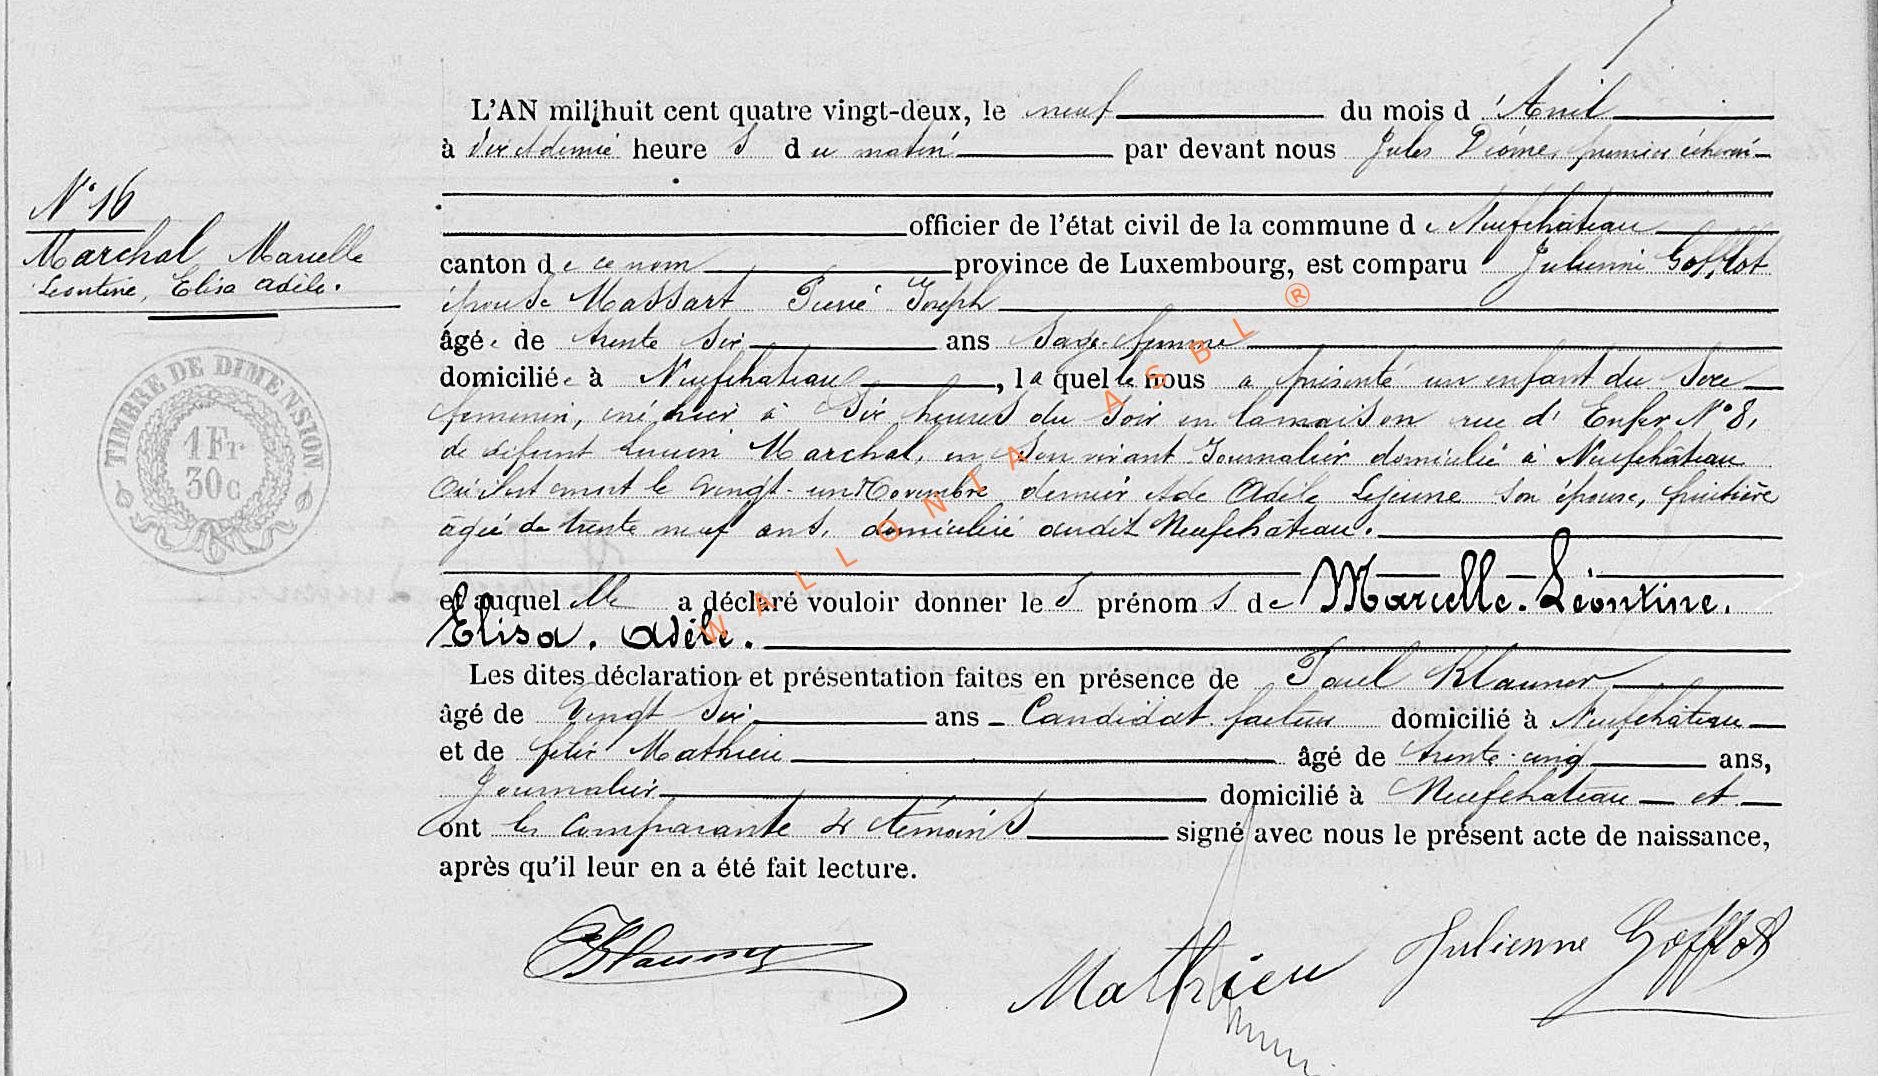 L'AN mil huit cent quatre vingt-deux, le neuf du mois d'Avril
à dix et demie heure s du matin par devant nous Jules premier échevin
officier de l'état civil de la commune de Neufchâteau
canton de ce nom province de Luxembourg, est comparu Julienne Gofflot
épouse Massart Pierre Joseph
âgée de trente six ans Sage-femme
domiciliée à Neufchateau, laquelle nous a présenté un enfant du sexe
feminin, né hier à six heures du soir en la maison rue d'Enfer N° 8,
de défunt Lucien Marchal, en son vivant Journalier domicilié à Neufchateau
où il est mort le vingt-un Novembre dernier et de Adèle Lejeune son épouse,
âgée de trente neuf ans, domiciliée audit Neufchâteau.
et auquel elle a déclaré vouloir donner les prénoms de Marcelle. Léontine.
Elisa. Adèle.
Les dites déclaration et présentation faites en présence de Paul Klauner
âgé de vingt six ans Candidat facteur domicilié à Neufchâteau
et de felix Mathieu âgé de trente-cinq ans,
Journalier domicilié à Neufchateau et
ont la comparante & témoins signé avec nous le présent acte de naissance,
après qu'il leur en a été fait lecture.
N° 16
Marchal Marcelle
Leontine, Elisa Adèle.
TIMBRE DE DIMENSION
1 Fr
30c
WALLONIA ASBL ®
Klauner
Mathieu
Julienne Gofflot